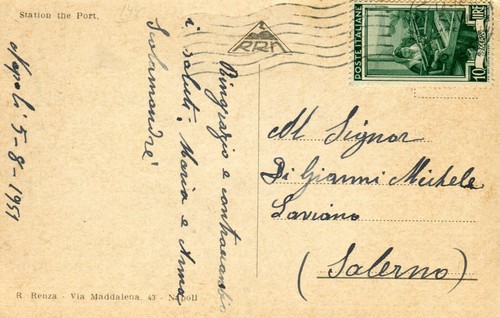 Station the Port,
RRN
POSTE ITALIANE
10 LIRE
Napoli 5-8-1951
Ringrazio e contraccambio
i saluti. Maria e Anna
Salamandré
Al Signor
Di Gianni Michele
Laviano
(Salerno)
R. Renza - Via Maddalena, 43 - Napoli